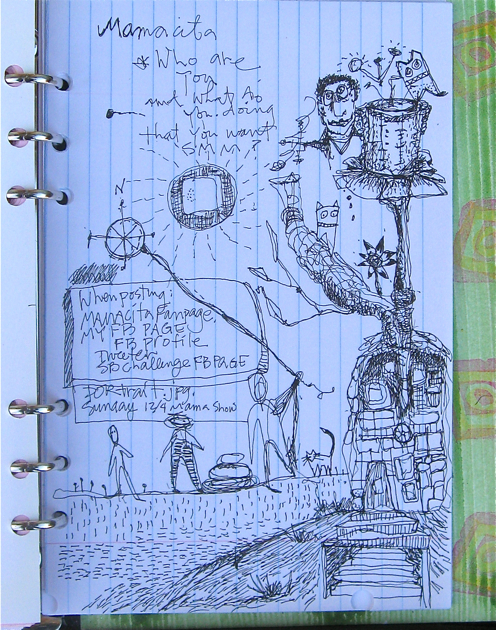 Mamacita
* Who are
You
and what do
you doing
that you want
SMM?
N
When posting:
MAMACITA Fanpage,
MY FB PAGE
FB profile
Tweeter
SB Challenge FB PAGE
FOR trait.jpg.
Sunday 12/4 Mama Show